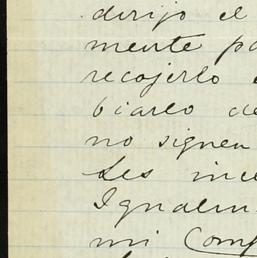 dirijo el
mente pa
recojerlo
biarlo de
no signen
Les ince
Igualm
mi Comp